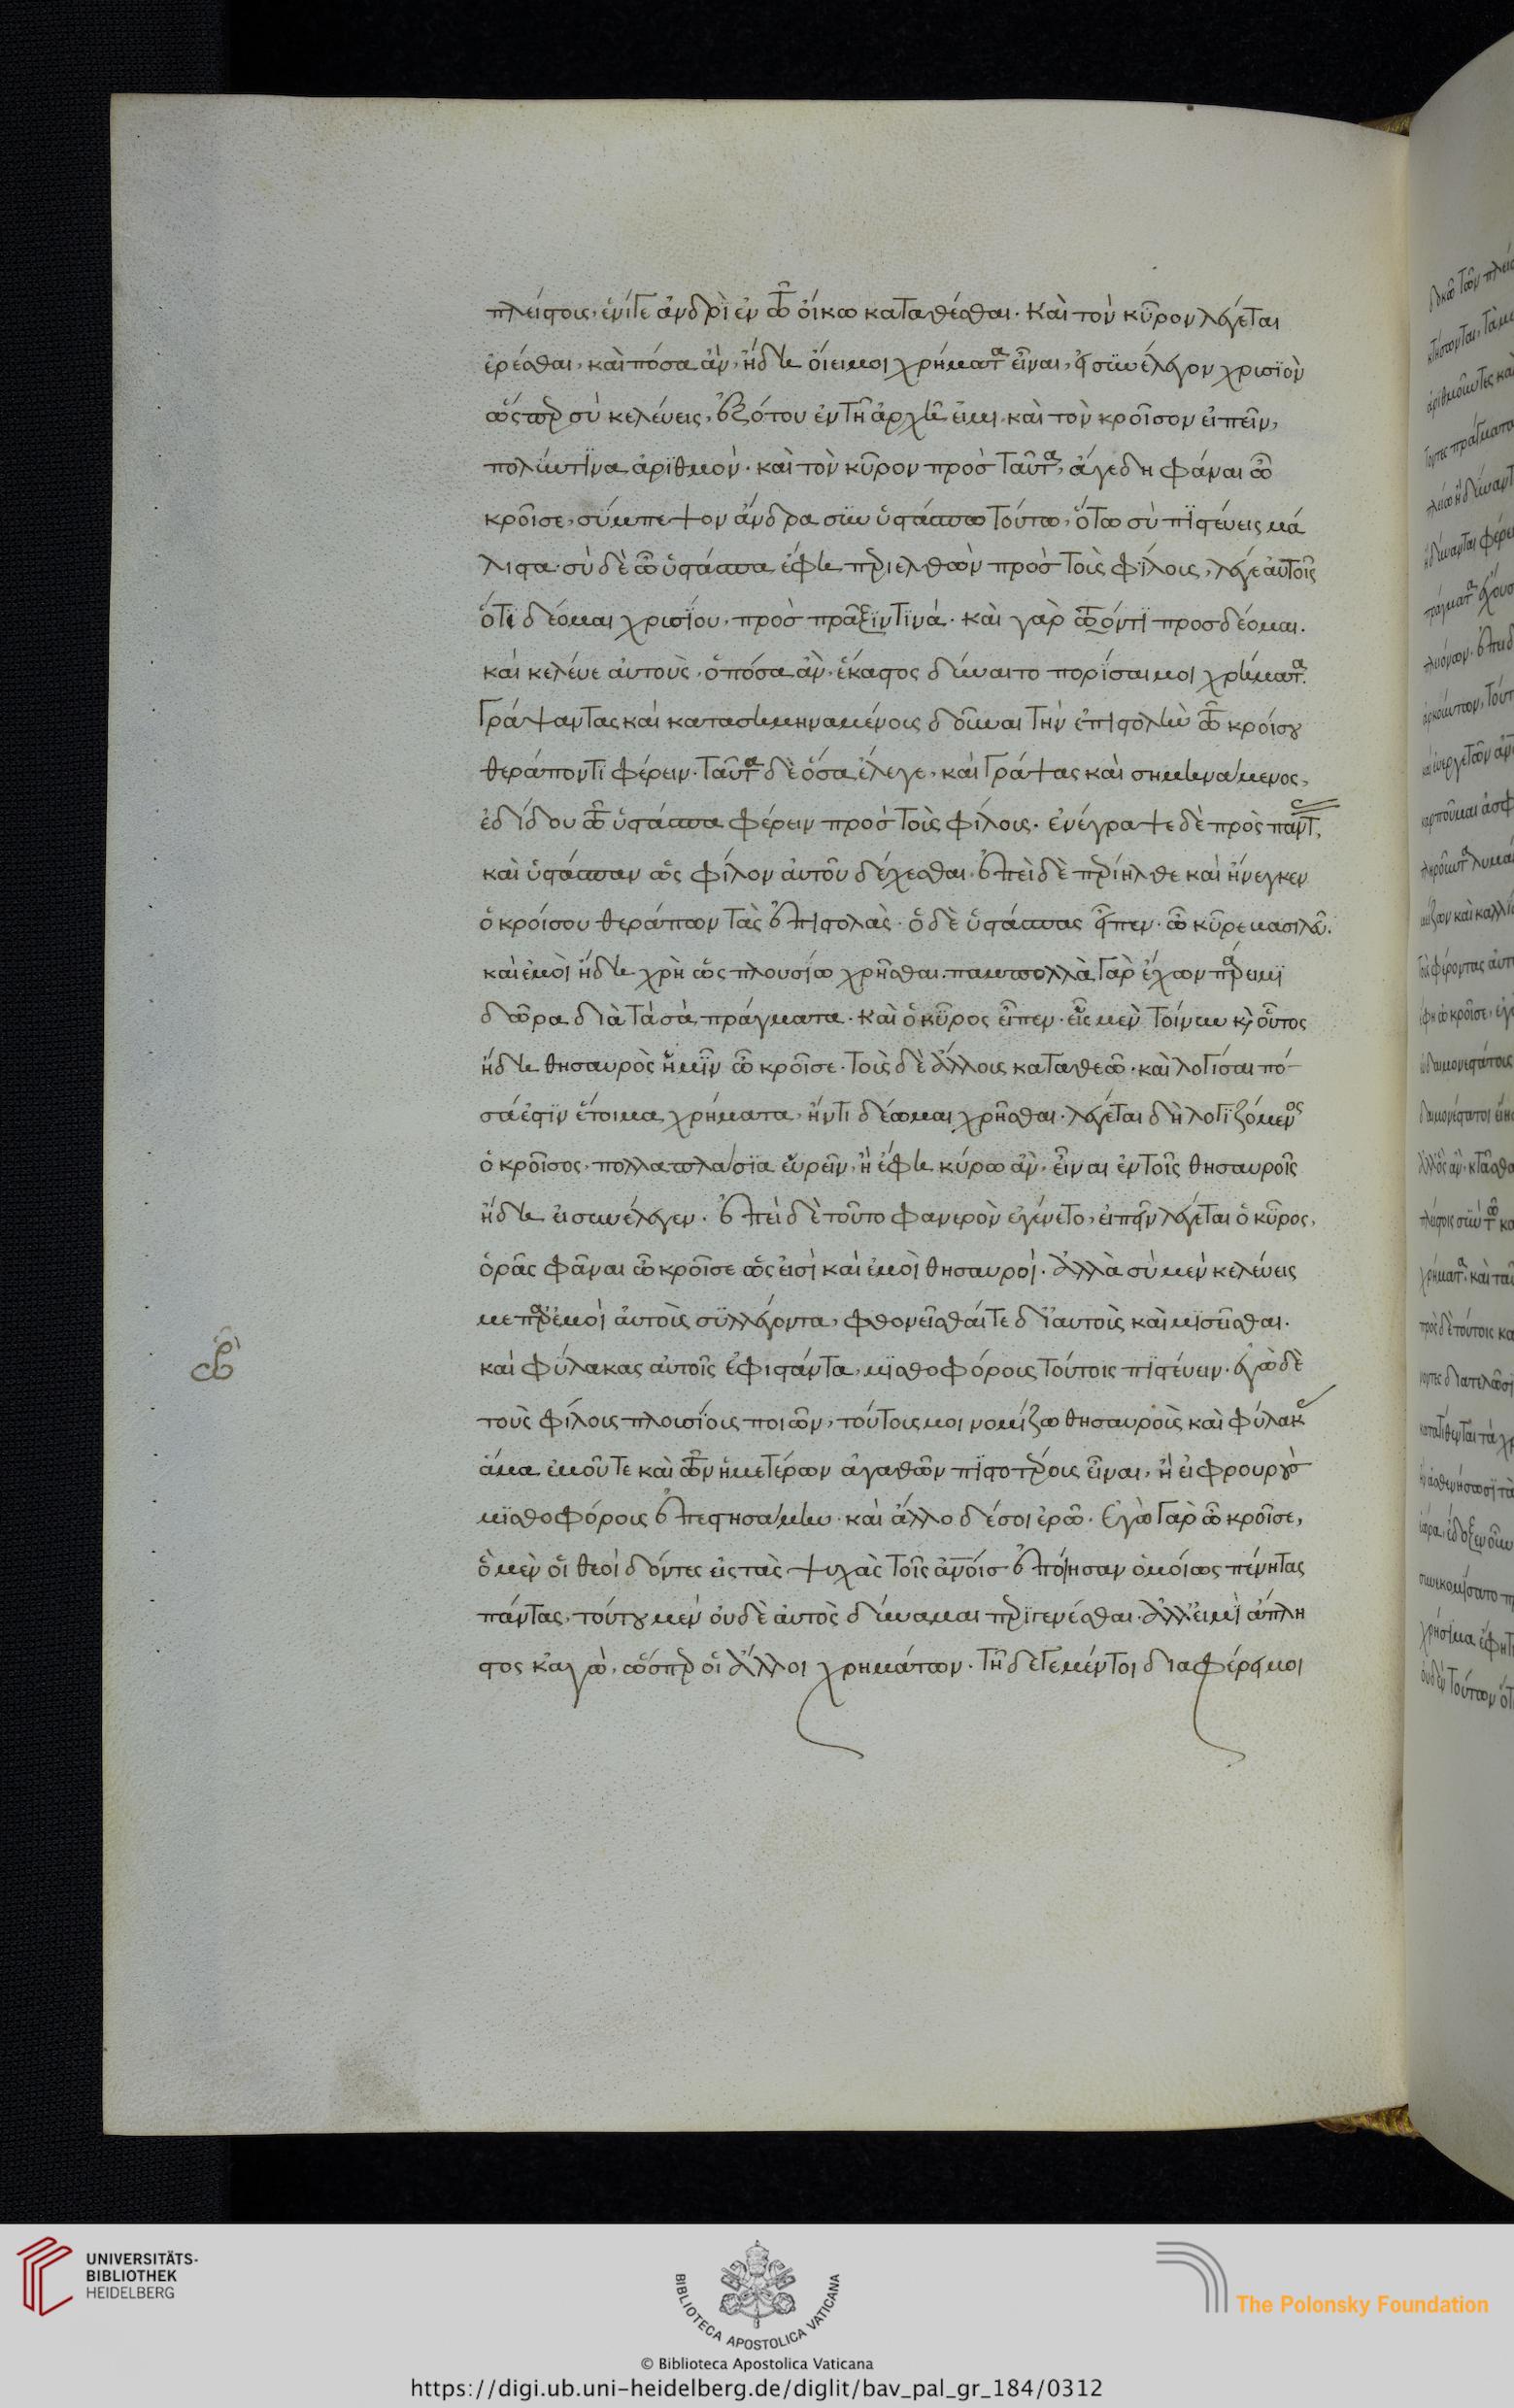 πλείστοις, ἑνί τε ἀνδρὶ ἐν τῶ οἴκω καταθέσθαι. καὶ τὸν κῦρον λέγεται
ἐρέσθαι, καὶ πόσα ἂν, ἤδη οἴει μοι χρήματα εἶναι, εἰ συνέλεγον χρυσίον
ὥσπερ σὺ κελεύεις, ἐξ ὅτου ἐν τῆ ἀρχῆ εἰμι. καὶ τὸν κροῖσον εἰπεῖν,
πολύν τινα ἀριθμόν. καὶ τὸν κῦρον πρὸς ταῦτα, ἄγε δὴ φάναι ὦ
κροῖσε, σύμπεμψον ἄνδρα σὺν ὑστάσπα τούτω, ὅτω σὺ πιστεύεις μά
λιστα. σὺ δὲ ὦ ὑστάσπα ἔφη περιελθὼν πρὸς τοὺς φίλους, λέγε αὐτοῖς
ὅτι δέομαι χρυσίου, πρὸς πρᾶξίν τινά. καὶ γὰρ τῶ ὄντι προσδέομαι.
καὶ κέλευε αὐτοὺς, ὁπόσα ἂν, ἕκαστος δύναιτο πορίσαι μοι χρήματα.
γράψαντας καὶ κατασημηναμένους δοῦναι τὴν ἐπιστολὴν τῶ κροίσου
θεράποντι φέρειν. ταῦτα δὲ ὅσα ἔλεγε, καὶ γράψας καὶ σημηνάμενος,
ἐδίδου τῶ ὑστάσπα φέρειν πρὸς τοὺς φίλους. ἐνέγραψε δὲ πρὸς πάντας,
καὶ ὑστάσπαν ὡς φίλον αὐτοῦ δέχεσθαι. ἐπεὶ δὲ περιῆλθε καὶ ἤνεγκεν
ὁ κροίσου θεράπων τὰς ἐπιστολὰς. ὁ δὲ ὑστάσπας εἶπεν. ὦ κῦρε βασιλεῦ.
καὶ ἐμοὶ ἤδη χρὴ ὡς πλουσίω χρῆσθαι. πάμπολλα γὰρ ἔχων πάρειμι
δῶρα διὰ τὰ σὰ πράγματα. καὶ ὁ κῦρος εἶπεν. εἷς μὲν τοίνυν καὶ οὗτος
ἤδη θησαυρὸς ἡμῖν ὦ κροῖσε. τοὺς δὲ ἄλλους καταθεῶ. καὶ λόγισαι πό-
σά ἐστιν ἕτοιμα χρήματα, ἤν τι δέωμαι χρῆσθαι. λέγεται δὴ λογιζόμενος
ὁ κροῖσος, πολλαπλάσια εὑρεῖν, ἢ ἔφη κύρω ἂν, εἶναι ἐν τοῖς θησαυροῖς
ἤδη εἰ συνέλεγεν. ἐπεὶ δὲ τοῦτο φανερὸν ἐγένετο, εἰπεῖν λέγεται ὁ κῦρος,
ὁρᾶς φάναι ὦ κροῖσε ὡς εἰσὶ καὶ ἐμοὶ θησαυροί. ἀλλὰ σὺ μὲν κελεύεις
με παρ' ἐμοὶ αὐτοὺς συλλέγοντα, φθονεῖσθαί τε δι' αὐτοὺς καὶ μισεῖσθαι.
καὶ φύλακας αὐτοῖς ἐφιστάντα, μισθοφόρους τούτοις πιστεύειν. ἐγὼ δὲ
τοὺς φίλους πλουσίους ποιῶν, τούτους μοι νομίζω θησαυροὺς καὶ φύλακας
ἅμα ἐμοῦ τε καὶ τῶν ἡμετέρων ἀγαθῶν πιστοτέρους εἶναι, ἢ εἰ φρουροὺς
μισθοφόρους ἐπεστησάμην. καὶ ἄλλο δέ σοι ἐρῶ. ἐγὼ γὰρ ὦ κροῖσε,
ὃ μὲν οἱ θεοὶ δόντες εἰς τὰς ψυχὰς τοῖς ἀνοις ἐποίησαν ὁμοίως πένητας
πάντας, τούτου μὲν οὐδὲ αὐτὸς δύναμαι περιγενέσθαι. ἀλλ' εἰμὶ ἄπλη
στος κἀγὼ, ὥσπερ οἱ ἄλλοι χρημάτων. τῆδέ γε μέντοι διαφέρειν μοι
UNIVERSITÄTS-
BIBLIOTHEK
HEIDELBERG
BIBLIOTECA APOSTOLICA VATICANA
The Polonsky Foundation
© Biblioteca Apostolica Vaticana
https://digi.ub.uni-heidelberg.de/diglit/bav_pal_gr_184/0312